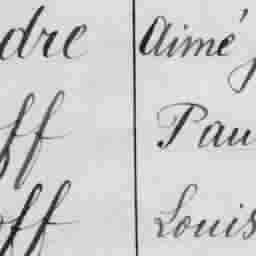 dre Aimé
ff Pau
off Louis